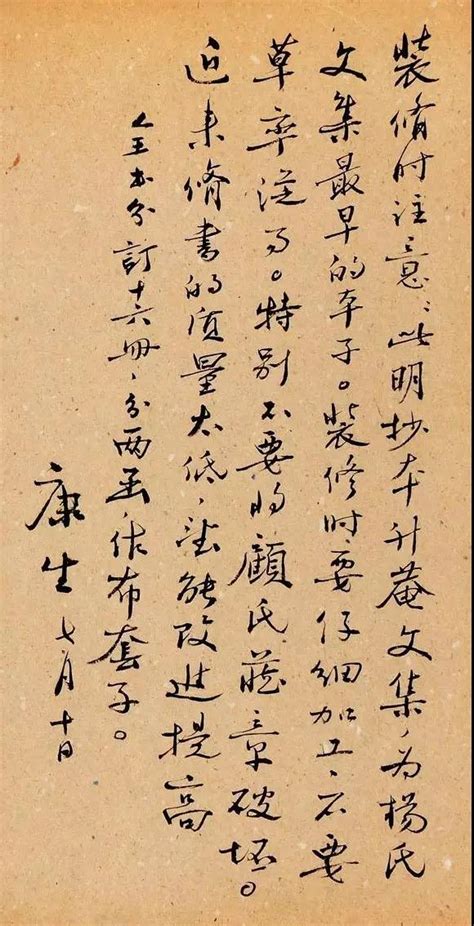 装脩时注意：此明抄本升菴文集，为杨氏
文集最早的本子。装修时要仔细加工，不要
草率从事。特别不要将顾氏藏章破坏。
近来脩书的质量太低，望能改进提高
全书分訂十六册，分两函，作布套子。
康生 七月十日